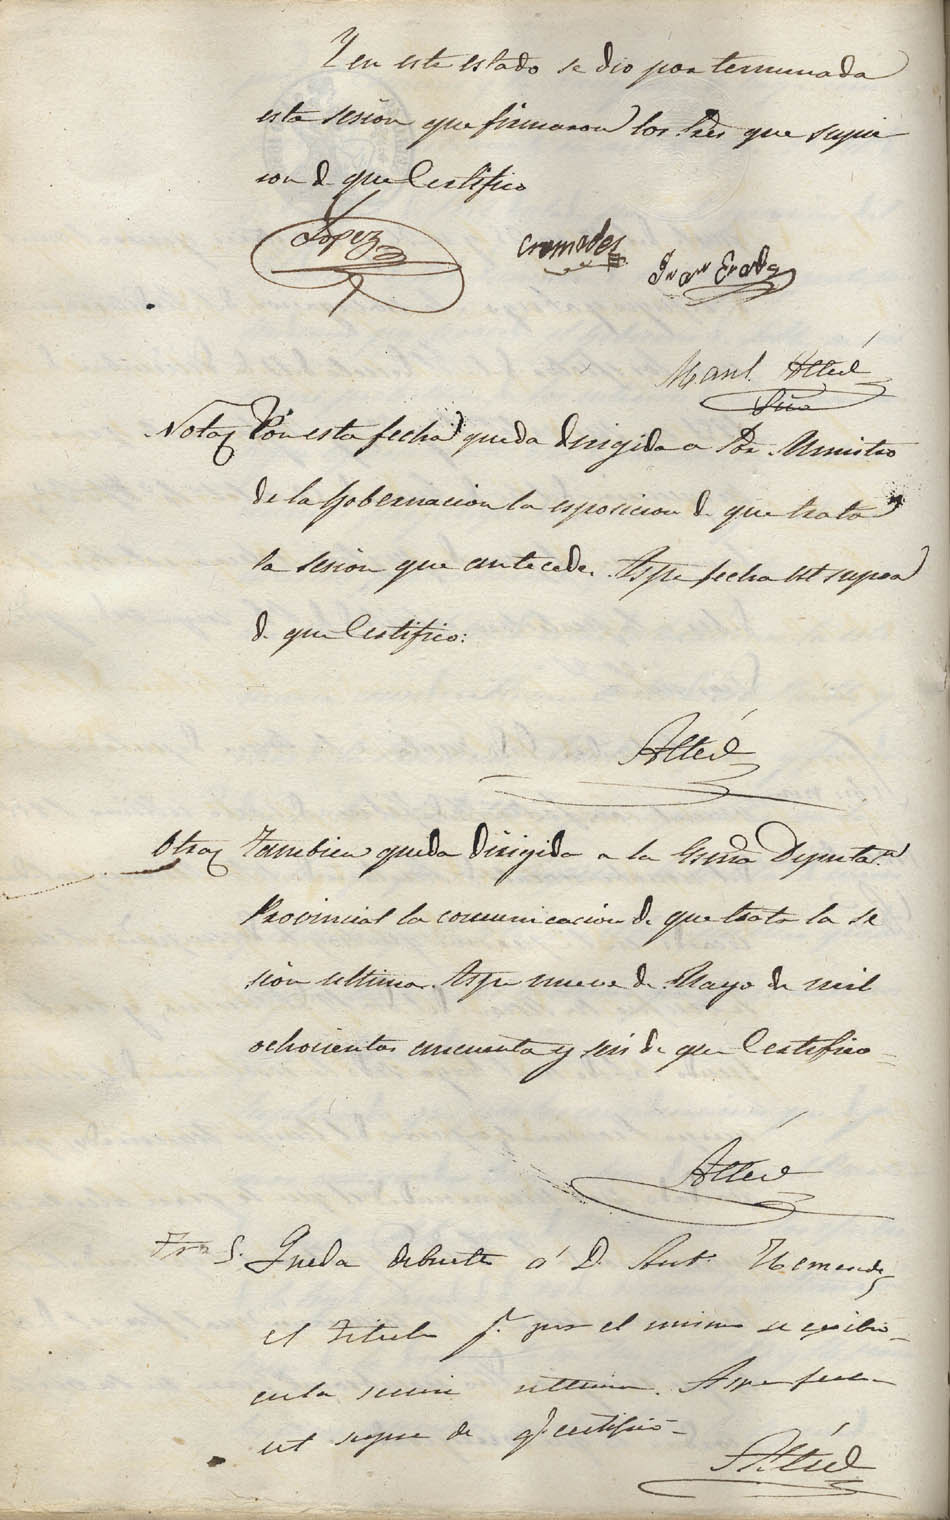 Y en este estado se dio por terminada
esta sesion que firmaron los Sres que supie
ron de que Certifico
Lopez
Cremades
Juan
Manl. Alted
Srio
Nota Con esta fecha queda dirigida a Sor. Ministro
de la Gobernacion la esposicion de que trata
la sesion que antecede. Aspe fecha ut supra
de que Certifico:
Alted
Otra Tambien queda dirigida a la Esma Diputa.n
Provincial la comunicacion de que trata la se
sion ultima. Aspe nueve de Mayo de mil
ochocientos cincuenta y seis de que Certifico
Alted
Queda debuelto á D. Ant.
el titulo q.e por el mismo se exibio
en la sesion ultima. Aspe fecha
ut supra de q.e certifico
Alted